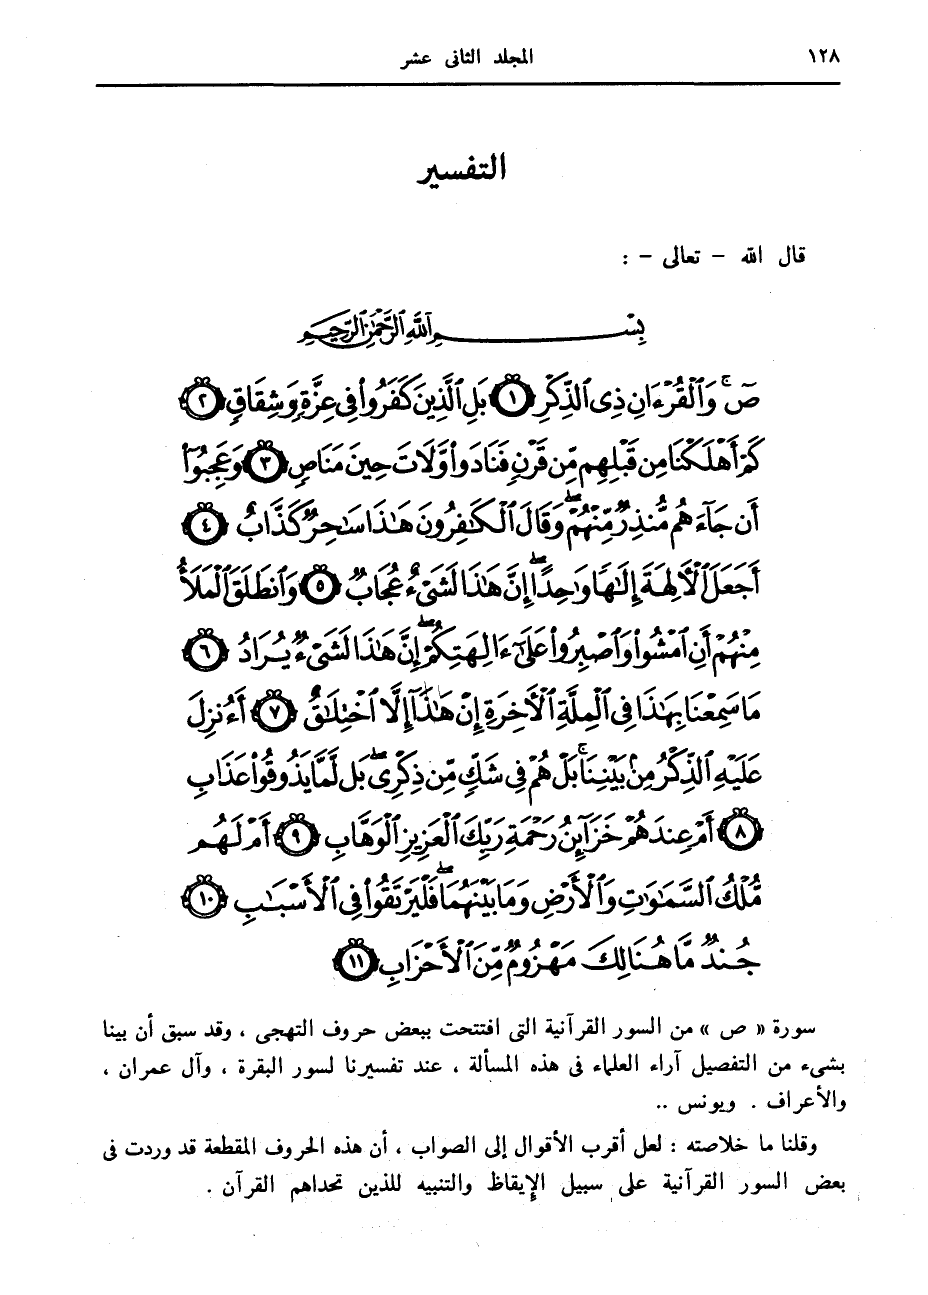 ١٢٨ المجلد الثانى عشر
التفسير
قال الله – تعالى – :
بِسْمِ ٱللَّهِ ٱلرَّحْمَٰنِ ٱلرَّحِيمِ
صٓ ۚ وَٱلْقُرْءَانِ ذِى ٱلذِّكْرِ ١ بَلِ ٱلَّذِينَ كَفَرُوا۟ فِى عِزَّةٍ وَشِقَاقٍ ٢
كَمْ أَهْلَكْنَا مِن قَبْلِهِم مِّن قَرْنٍ فَنَادَوا۟ وَّلَاتَ حِينَ مَنَاصٍ ٣ وَعَجِبُوٓا۟
أَن جَآءَهُم مُّنذِرٌ مِّنْهُمْ ۖ وَقَالَ ٱلْكَٰفِرُونَ هَٰذَا سَٰحِرٌ كَذَّابٌ ٤
أَجَعَلَ ٱلْءَالِهَةَ إِلَٰهًا وَٰحِدًا ۖ إِنَّ هَٰذَا لَشَىْءٌ عُجَابٌ ٥ وَٱنطَلَقَ ٱلْمَلَأُ
مِنْهُمْ أَنِ ٱمْشُوا۟ وَٱصْبِرُوا۟ عَلَىٰٓ ءَالِهَتِكُمْ ۖ إِنَّ هَٰذَا لَشَىْءٌ يُرَادُ ٦
مَا سَمِعْنَا بِهَٰذَا فِى ٱلْمِلَّةِ ٱلْءَاخِرَةِ إِنْ هَٰذَآ إِلَّا ٱخْتِلَٰقٌ ٧ أَءُنزِلَ
عَلَيْهِ ٱلذِّكْرُ مِنۢ بَيْنِنَا ۚ بَلْ هُمْ فِى شَكٍّ مِّن ذِكْرِى ۖ بَل لَّمَّا يَذُوقُوا۟ عَذَابِ
٨ أَمْ عِندَهُمْ خَزَآئِنُ رَحْمَةِ رَبِّكَ ٱلْعَزِيزِ ٱلْوَهَّابِ ٩ أَمْ لَهُم
مُّلْكُ ٱلسَّمَٰوَٰتِ وَٱلْأَرْضِ وَمَا بَيْنَهُمَا ۖ فَلْيَرْتَقُوا۟ فِى ٱلْأَسْبَٰبِ ١٠
جُندٌ مَّا هُنَالِكَ مَهْزُومٌ مِّنَ ٱلْأَحْزَابِ ١١
سورة « ص » من السور القرآنية التى افتتحت ببعض حروف التهجى ، وقد سبق أن بينا
بشىء من التفصيل آراء العلماء فى هذه المسألة ، عند تفسيرنا لسور البقرة ، وآل عمران ،
والأعراف . ويونس ..
وقلنا ما خلاصته : لعل أقرب الأقوال إلى الصواب ، أن هذه الحروف المقطعة قد وردت فى
بعض السور القرآنية على سبيل الإيقاظ والتنبيه للذين تحداهم القرآن .